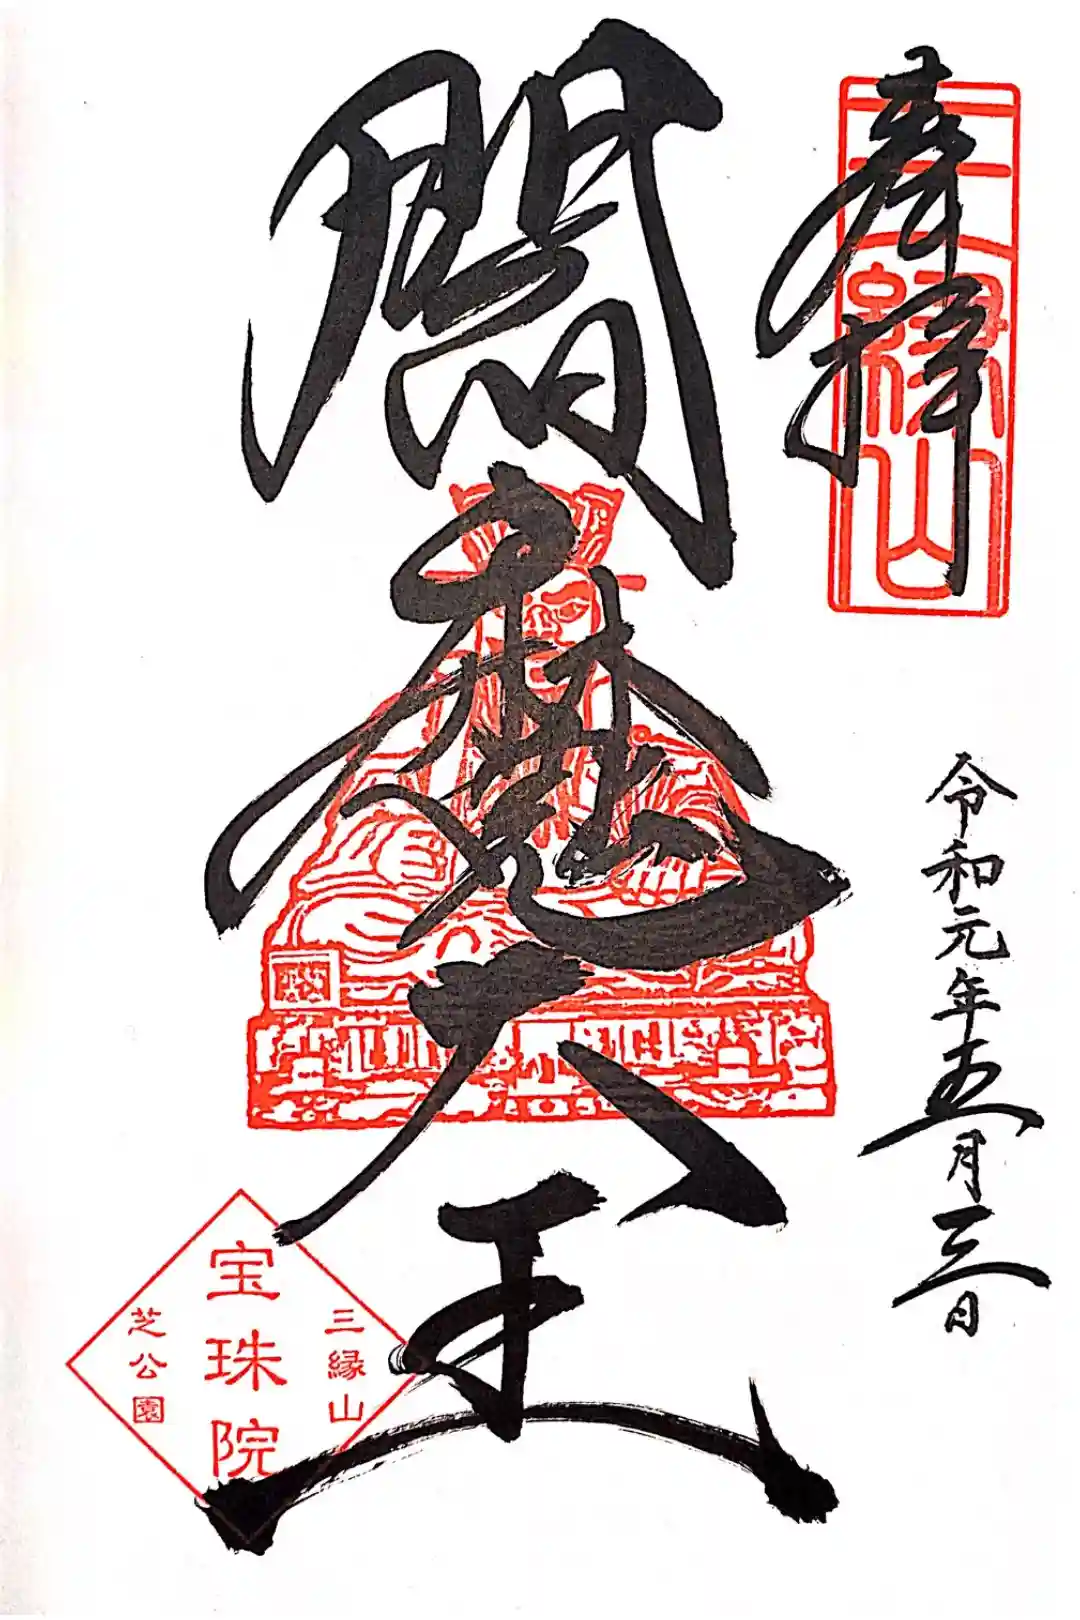 奉拝
三縁山
令和元年五月三日
閻魔天王
三縁山
宝珠院
芝公園